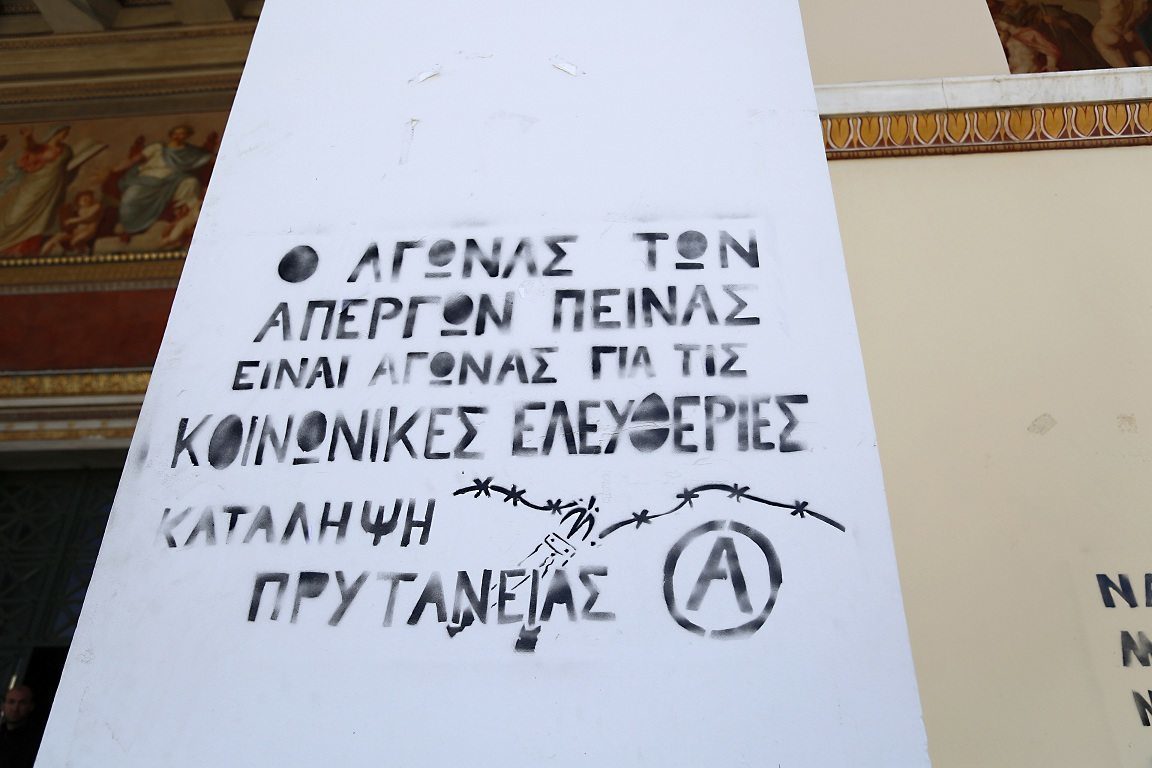 Ο ΑΓΩΝΑΣ ΤΩΝ
ΑΠΕΡΓΩΝ ΠΕΙΝΑΣ
ΕΙΝΑΙ ΑΓΩΝΑΣ ΓΙΑ ΤΙΣ
ΚΟΙΝΩΝΙΚΕΣ ΕΛΕΥΘΕΡΙΕΣ
ΚΑΤΑΛΗΨΗ
ΠΡΥΤΑΝΕΙΑΣ
Α